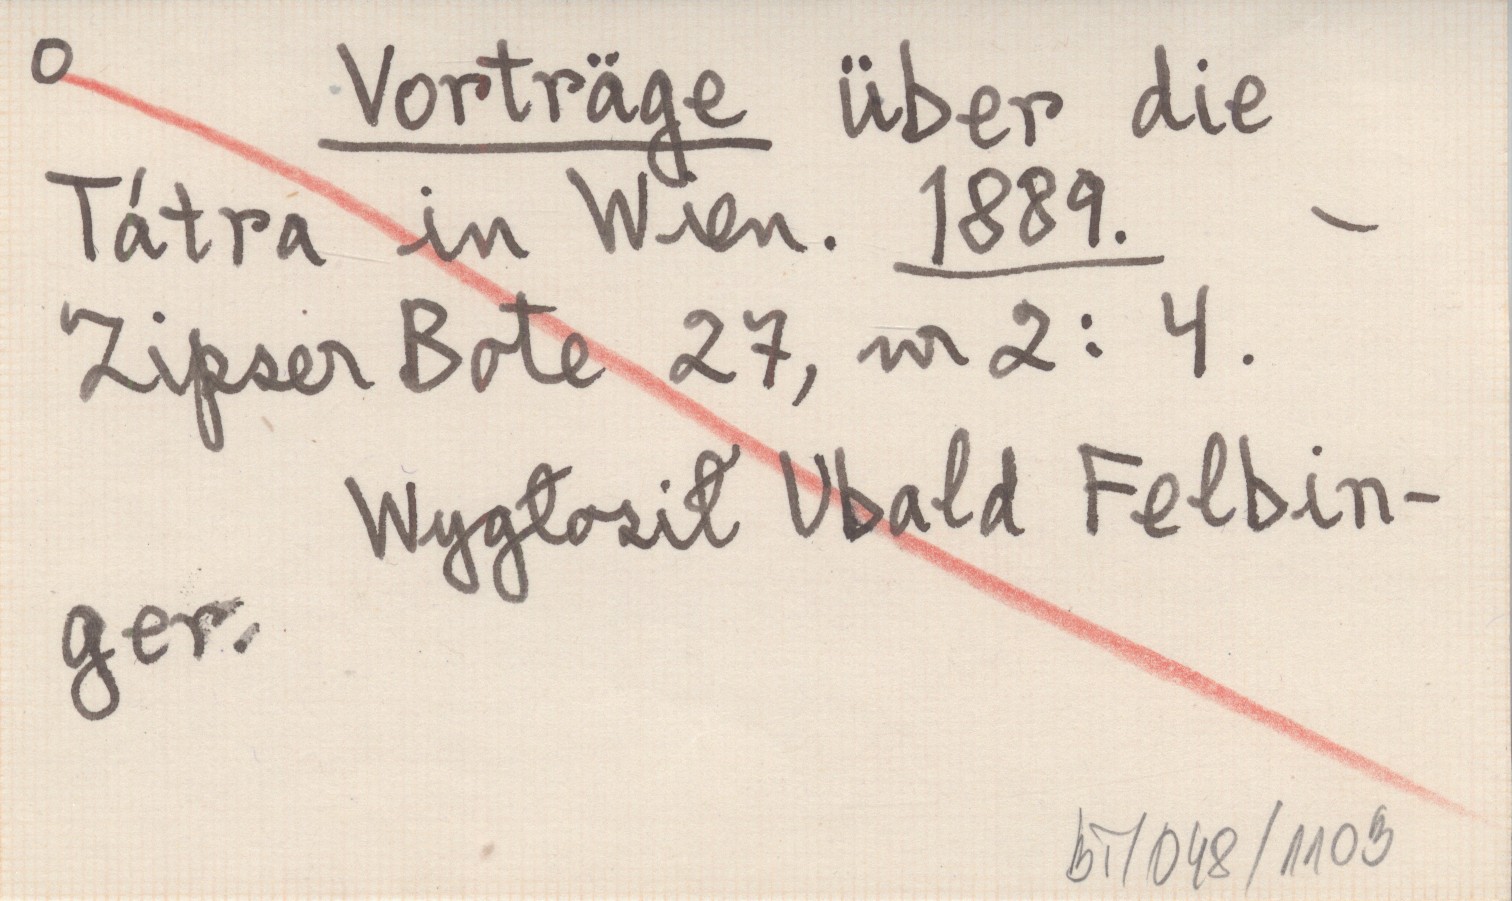 O
Vorträge über die
Tátra in Wien. 1889. –
Zipser Bote 27, nr 2: 4.
Wygłosił Ubald Felbin-
ger.
bT/048/1103